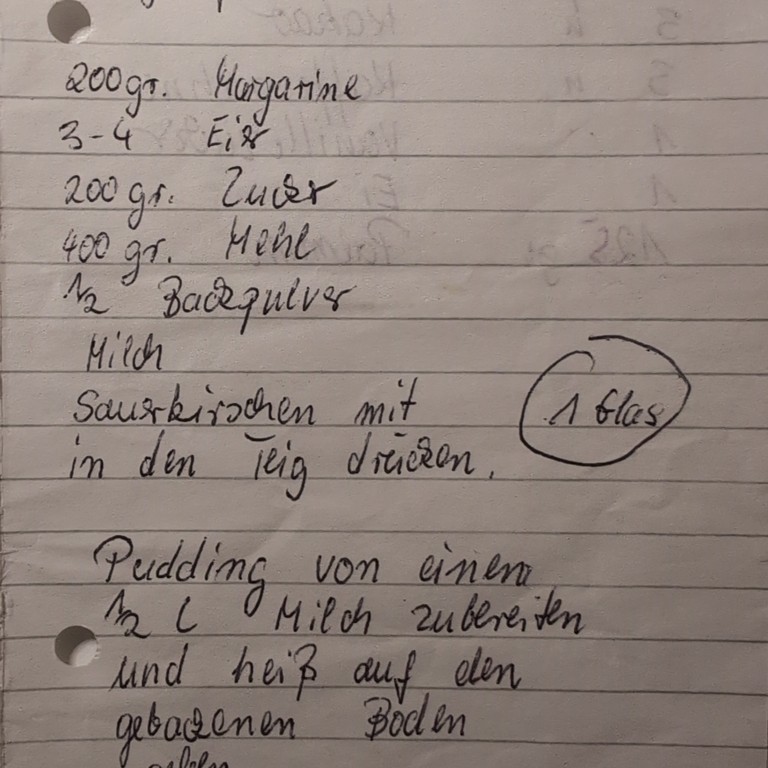 200gr. Margarine
3-4 Eier
200 gr. Zucker
400 gr. Mehl
1/2 Backpulver
Milch
Sauerkirschen mit
1 Glas
in den Teig drücken.
Pudding von einem
1/2 l Milch zubereiten
und heiß auf den
gebackenen Boden